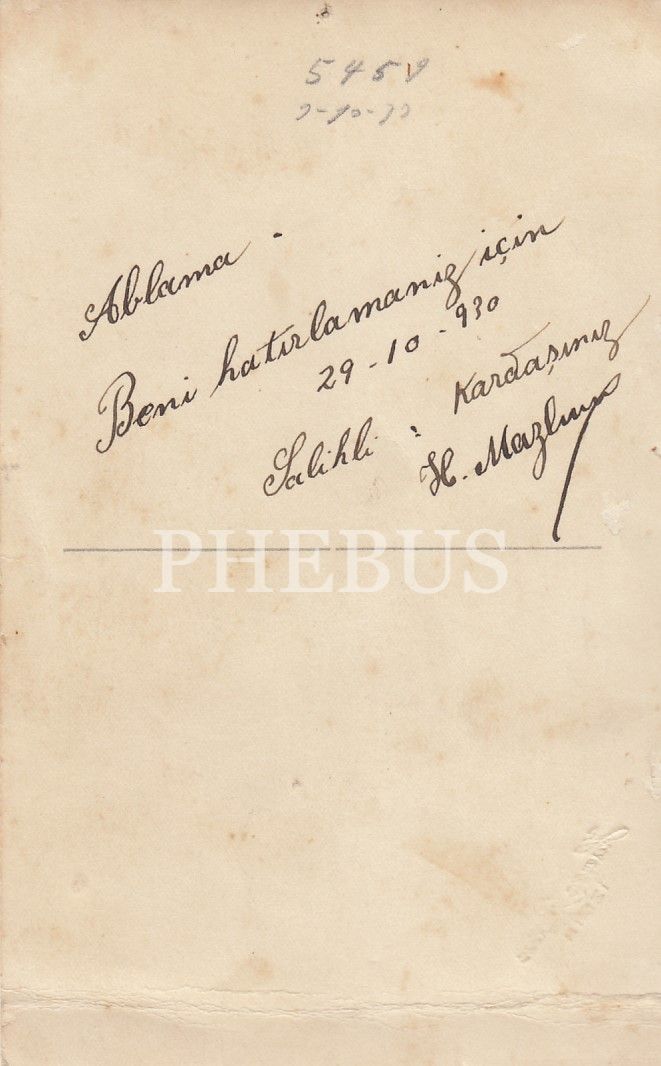 5454
Ablama -
Beni hatırlamanız için
29-10-930
Salihli : Kardaşınız
H. Mazlum
PHEBUS